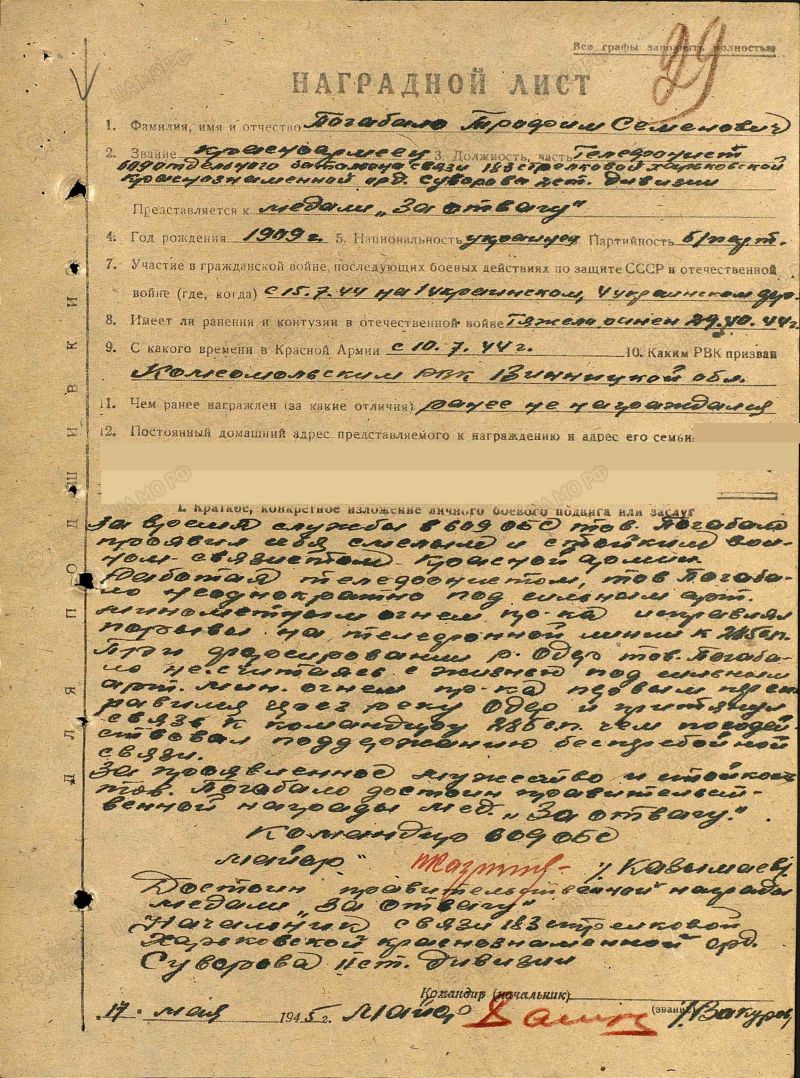 Все графы заполнять полностью
29
НАГРАДНОЙ ЛИСТ
1. Фамилия, имя и отчество Погабало Трофим Семенович
2. Звание красноармеец 3. Должность, часть Телефонист
609 отдельного батальона связи 183 стрелковой Харьковской
краснознаменной орд. Суворова IIст. дивизии
Представляется к медали „За отвагу"
4. Год рождения 1909 г. 5. Национальность украинец Партийность б/парт.
7. Участие в гражданской войне, последующих боевых действиях по защите СССР и отечественной
войне (где, когда) с 15.7.44 на 1 украинском, 4 украинском
8. Имеет ли ранения и контузии в отечественной войне Тяжело ранен 29. 10. 44 г.
9. С какого времени в Красной Армии с 10. 7. 44 г. 10. Каким РВК призван
Комсомольским РВК Винницкой обл.
11. Чем ранее награжден (за какие отличия) ранее не награждался
12. Постоянный домашний адрес представляемого к награждению и адрес его семьи
I. Краткое, конкретное изложение личного боевого подвига или заслуг
За время службы в 609 ОБС тов. Погабало
проявил себя смелым и стойким вои-
ном-связистом Красной армии.
Работая телефонистом, тов Погаба-
ло неоднократно под сильным арт.
минометным огнем пр-ка исправлял
порывы на телефонной линии к 285 сп.
При форсировании р. Одер тов. Погаба-
ло не считаясь с жизнью под сильным
арт. мин. огнем пр-ка первым переп-
равился через реку Одер и притянул
связь к командиру 285 сп. чем посодей
ствовал поддержанию бесперебойной
связи.
За проявленное мужество и стойкость
тов. Погабало достоин правительст-
венной награды мед. „За отвагу."
Командир 609 ОБС
майор
Достоин правительственной награды
медали „За отвагу"
Начальник связи 183 стрелковой
Харьковской краснознаменной орд.
Суворова IIст. дивизии
Командир (начальник)
(звание)
17. мая 1945 г. Майор /Вакуров/
ДЛЯ ПОДШИВКИ
ЦАМО РФ
ЦАМО РФ
ЦАМО РФ